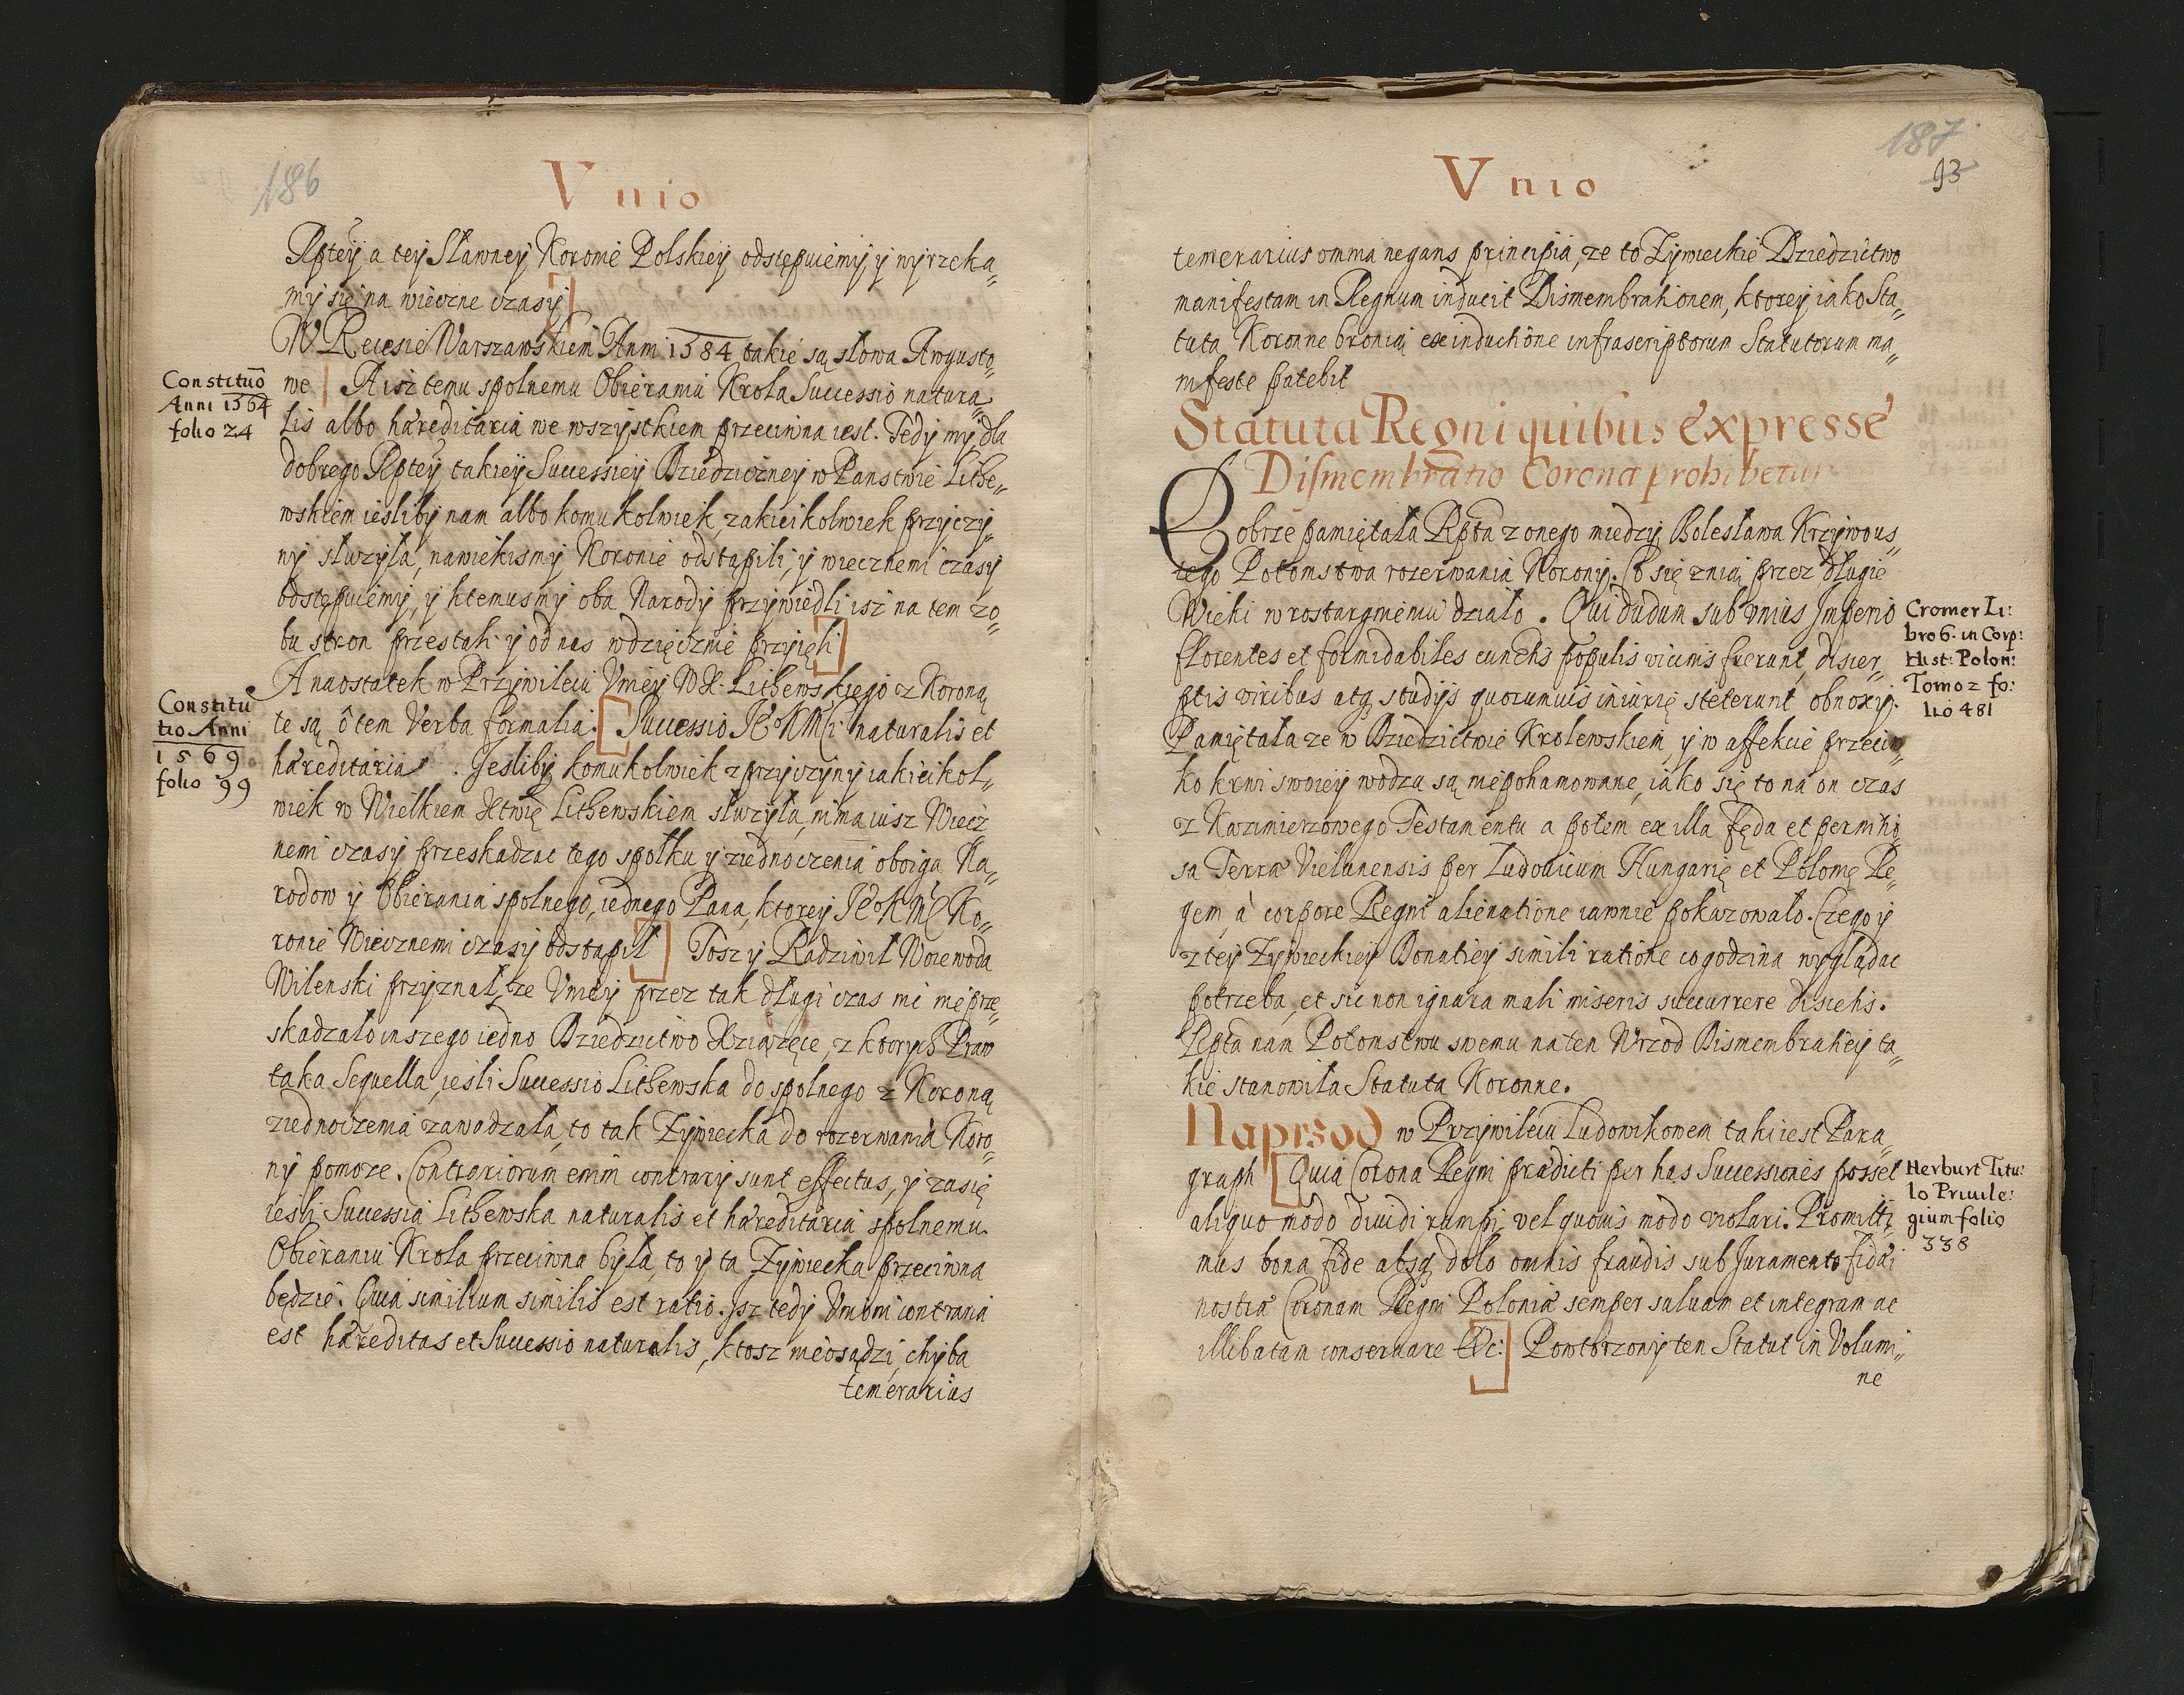 186
Vnio
Rptey a tey Sławney Koronie Polskiey odstępuiemy y wyrzeka„
my się na wieczne czasy
W Recesie Warszawskiem Anni 1584 takie są słowa Awgusto„
we A isz temu spolnemu Obieraniu Krola Successio natura„
lis albo hæreditaria we wszystkiem przeciwna iest. Tedy my dla
dobrego Rptey takiey Successiey Dziedziczney w Panstwie Lithe„
wskiem iesliby nam albo komukolwiek zakieikolwiek przyczy„
ny słuzyła, nawiekismy Koronie odstąpili, y wiecznemi czasy
odstępuiemy, y ktemusmy oba Narody przywiedli isz na tem zo„
bu stron przestali y od nas wdzięcznie przyięli
A naostatek w Przywileiu Vniey WX. Lithewskiego z Koroną
te są o tem Verba formalia. Successio JEoKMCi naturalis et
hæreditaria. Jesliby komukolwiek z przyczyny iakieikol„
wiek w Wielkiem Xtwię Lithewskiem słuzyła, nima iusz Wiecz
nemi czasy przeskadzac tego społku y ziednoczenia oboiga Na„
rodow y Obierania spolnego, iednego Pana, ktorey JEoKMC Ko„
ronie Wiecznemi czasy odstąpił Tosz y Radziwił Woiewoda
Wilenski przyznał, ze Vniey przez tak długi czas nic nieprze„
skadzało inszego iedno Dziedzictwo Xiązęce, z ktorych Praw
taka Sequella, iesli Successio Lithewska do spolnego z Koroną
ziednoczenia zawadzała, to tak Zywiecka do rozerwania Koro„
ny pomoze. Contrariorum enim contrarij sunt effectus, y zasię
iesli Successia Lithewska naturalis et hæreditaria spolnemu
Obieraniu Krola przeciwna była, to y ta Zywiecka przeciwna
będzie. Quia similium similis est ratio. Jsz tedy Vnioni contraria
est hæreditas et Successio naturalis, ktosz nieosądzi, chyba
temerarius
Constituō
Anni 1564
folio 24
Constitu
tio Anni
1569
folio 99
187
93
Vnio
temerarius omnia negans principia, ze to Zywieckie Dziedzictwo
manifestam in Regnum inducit Dismembrationem, ktorey iako Sta„
tuta Koronne bronią ex inductione infrascriptorum Statutorum ma„
nifeste patebit
Statuta Regni quibus expresse
Dismembratio Coronæ prohibetur
Dobrze pamiętała Rpta z onego miedzy Bolesława Krzywous„
tego Potomstwa rozerwania Korony. Co się znią przez długie
Wieki w rostargnieniu działo. Qui dudum sub vnius Jmperio
florentes et formidabiles cunctis populis vicinis fuerunt, discer„
ptis viribus atq; studijs quorumuis iniurię steterunt obnoxij.
Pamiętała ze w Dziedzictwie Krolewskiem, y w affekcie przeciw„
ko krwi swoiey wodza są niepohamowane, iako się to na on czas
z Kazimierzowego Testamentu a potem ex illa fęda et pernitio
sa Terræ Vielunensis per Ludouicum Hungarię et Polonię Re„
gem, à corpore Regni alienatione iawnie pokazowało. Czego y
z tey Zywieckiey Donatiey simili ratione co godzina wyglądac
potrzeba, et sic non ignara mali miseris succurrere disictis.
Rpta nam Potomstwu swemu na ten Wrzod Dismembratiey ta„
kie stanowiła Statuta Koronne.
Naprzod w Przywileiu Ludowikowem taki iest Para„
graph Quia Corona Regni prædicti per has Successiones posset
aliquo modo diuidi, rumpi, vel quouis modo violari. Promitti„
mus bona fide absq; dolo omnis fraudis sub Juramento fidæi
nostræ Coronam Regni Poloniæ semper saluam et integram ac
illibatam conseruare etc: Powtorzony ten Statut in Volumi„
ne
Cromer Li:
bro 6. in Corp:
Hist: Polon:
Tomo 2 fo:
lio 481
Herburt Titu:
lo Priuile:
gium folio
338